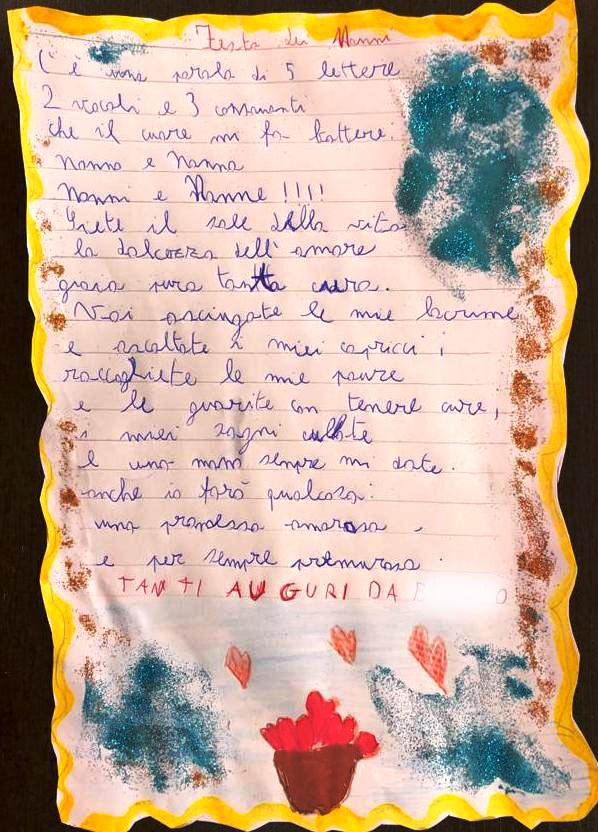 Festa dei Nonni
C'è una parola di 5 lettere
2 vocali e 3 consonanti
che il cuore mi fa battere:
Nonno e Nonna
Nonni e Nonne !!!!
Siete il sole della vita
la dolcezza dell'amore
gioia pura tanta cura.
Voi asciugate le mie lacrime
e ascoltate i miei capricci,
raccogliete le mie paure
e le guarite con tenere cure,
i miei sogni cullate
e una mano sempre mi date.
anche io farò qualcosa:
una promessa amorosa
e per sempre premurosa.
TANTI AUGURI DA